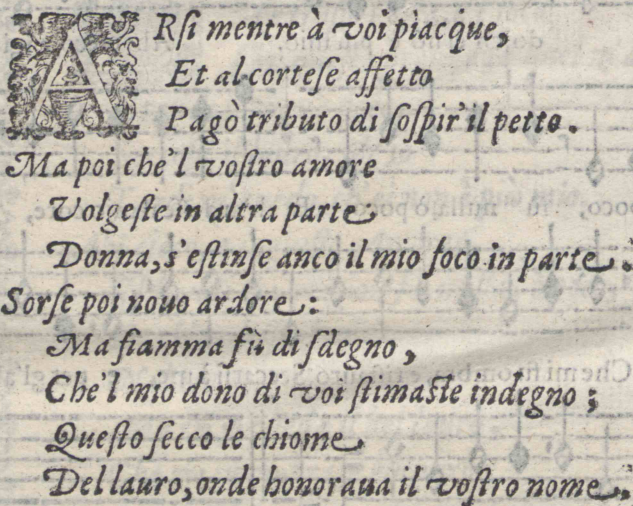 ARſi mentre à voi piacque,
Et al corteſe affetto
Pagò tributo di ſoſpir' il petto.
Ma poi che'l voſtro amore
Volgeſte in altra parte
Donna, s'eſtinſe anco il mio foco in parte.
Sorſe poi nouo ardore:
Ma fiamma fù di ſdegno,
Che'l mio dono di voi ſtimaſte indegno;
Queſto ſecco le chiome
Del lauro, onde honoraua il voſtro nome.